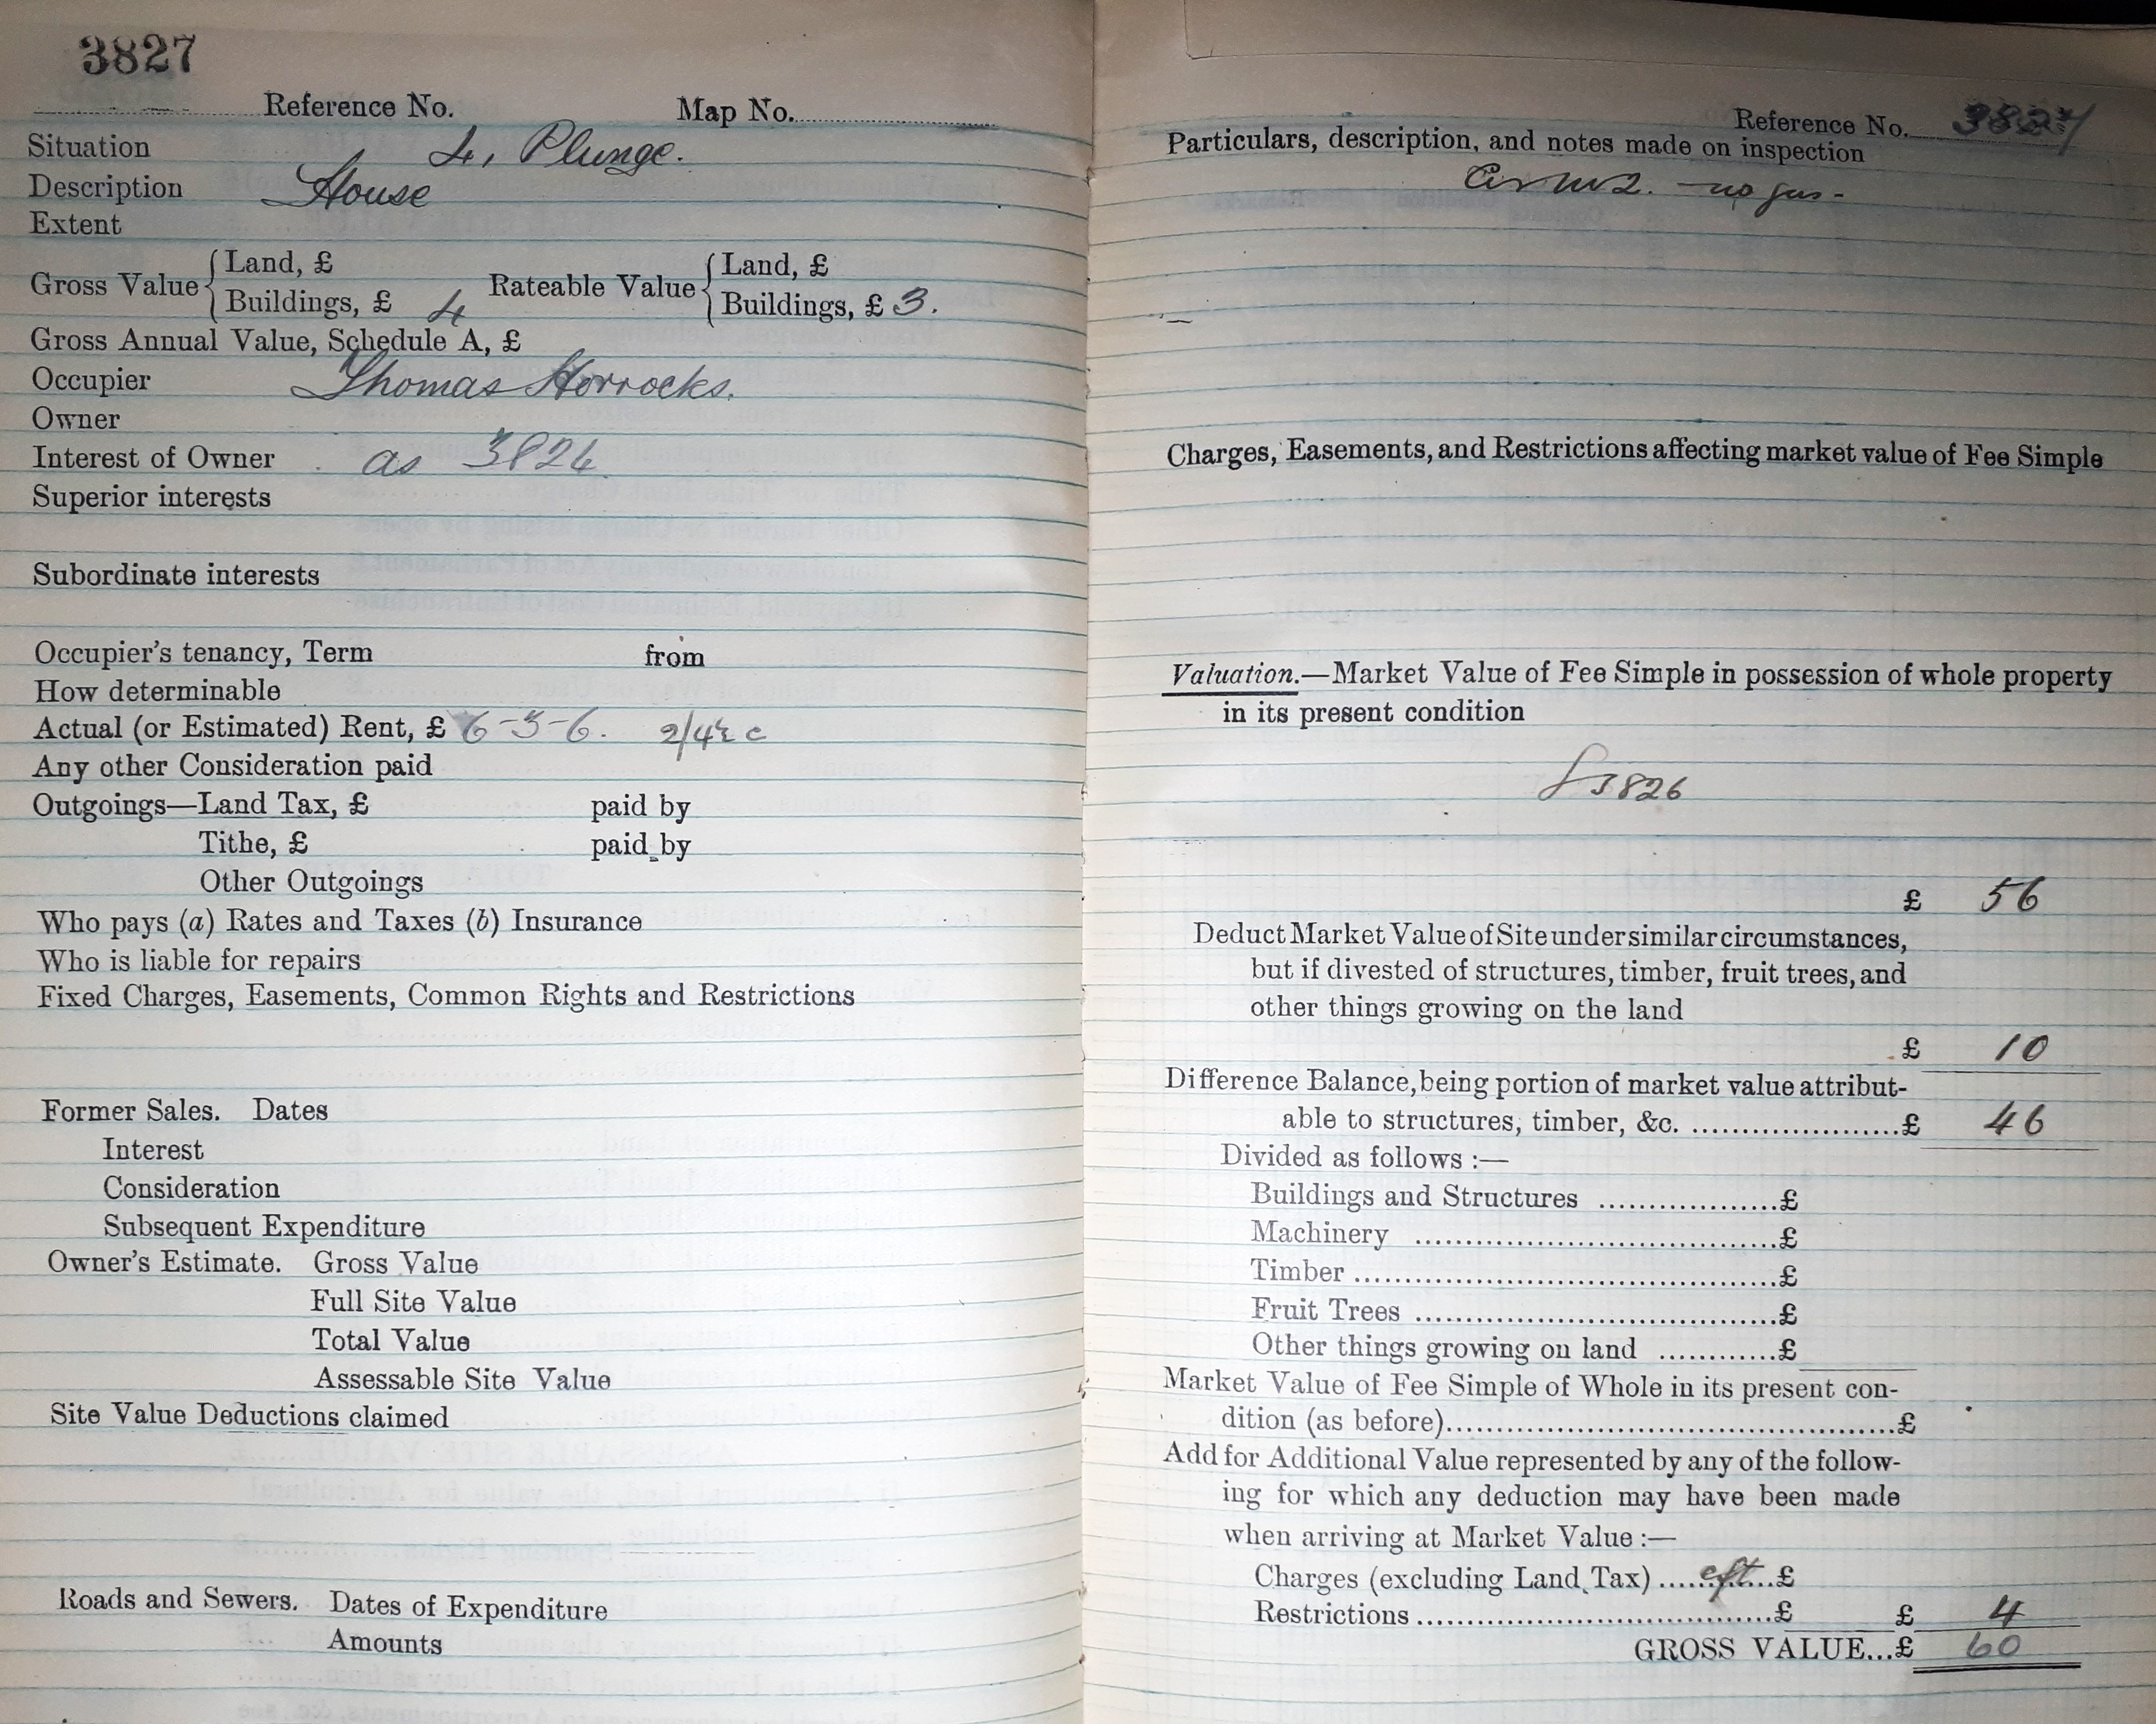 3827
Reference No. Map No.
Situation 4, Plunge.
Description House
Extent
Gross Value { Land, £ Rateable Value { Land, £
Buildings, £ 4 Buildings, £ 3.
Gross Annual Value, Schedule A, £
Occupier Thomas Horrocks.
Owner
Interest of Owner as 3826
Superior interests
Subordinate interests
Occupier's tenancy, Term from
How determinable
Actual (or Estimated) Rent, £ 6-3-6. 2/4½ c
Any other Consideration paid
Outgoings—Land Tax, £ paid by
Tithe, £ paid by
Other Outgoings
Who pays (a) Rates and Taxes (b) Insurance
Who is liable for repairs
Fixed Charges, Easements, Common Rights and Restrictions
Former Sales. Dates
Interest
Consideration
Subsequent Expenditure
Owner's Estimate. Gross Value
Full Site Value
Total Value
Assessable Site Value
Site Value Deductions claimed
Roads and Sewers. Dates of Expenditure
Amounts
Reference No. 3827
Particulars, description, and notes made on inspection
no gas-
Charges, Easements, and Restrictions affecting market value of Fee Simple
Valuation.—Market Value of Fee Simple in possession of whole property
in its present condition
3826
£ 56
Deduct Market Value of Site under similar circumstances,
but if divested of structures, timber, fruit trees, and
other things growing on the land
£ 10
Difference Balance, being portion of market value attribut-
able to structures, timber, &c. ......................£ 46
Divided as follows :—
Buildings and Structures ..................£
Machinery .....................................£
Timber ..........................................£
Fruit Trees .....................................£
Other things growing on land ............£
Market Value of Fee Simple of Whole in its present con-
dition (as before)..............................................£
Add for Additional Value represented by any of the follow-
ing for which any deduction may have been made
when arriving at Market Value :—
Charges (excluding Land Tax) ............£
Restrictions ....................................£ £ 4
GROSS VALUE...£ 60